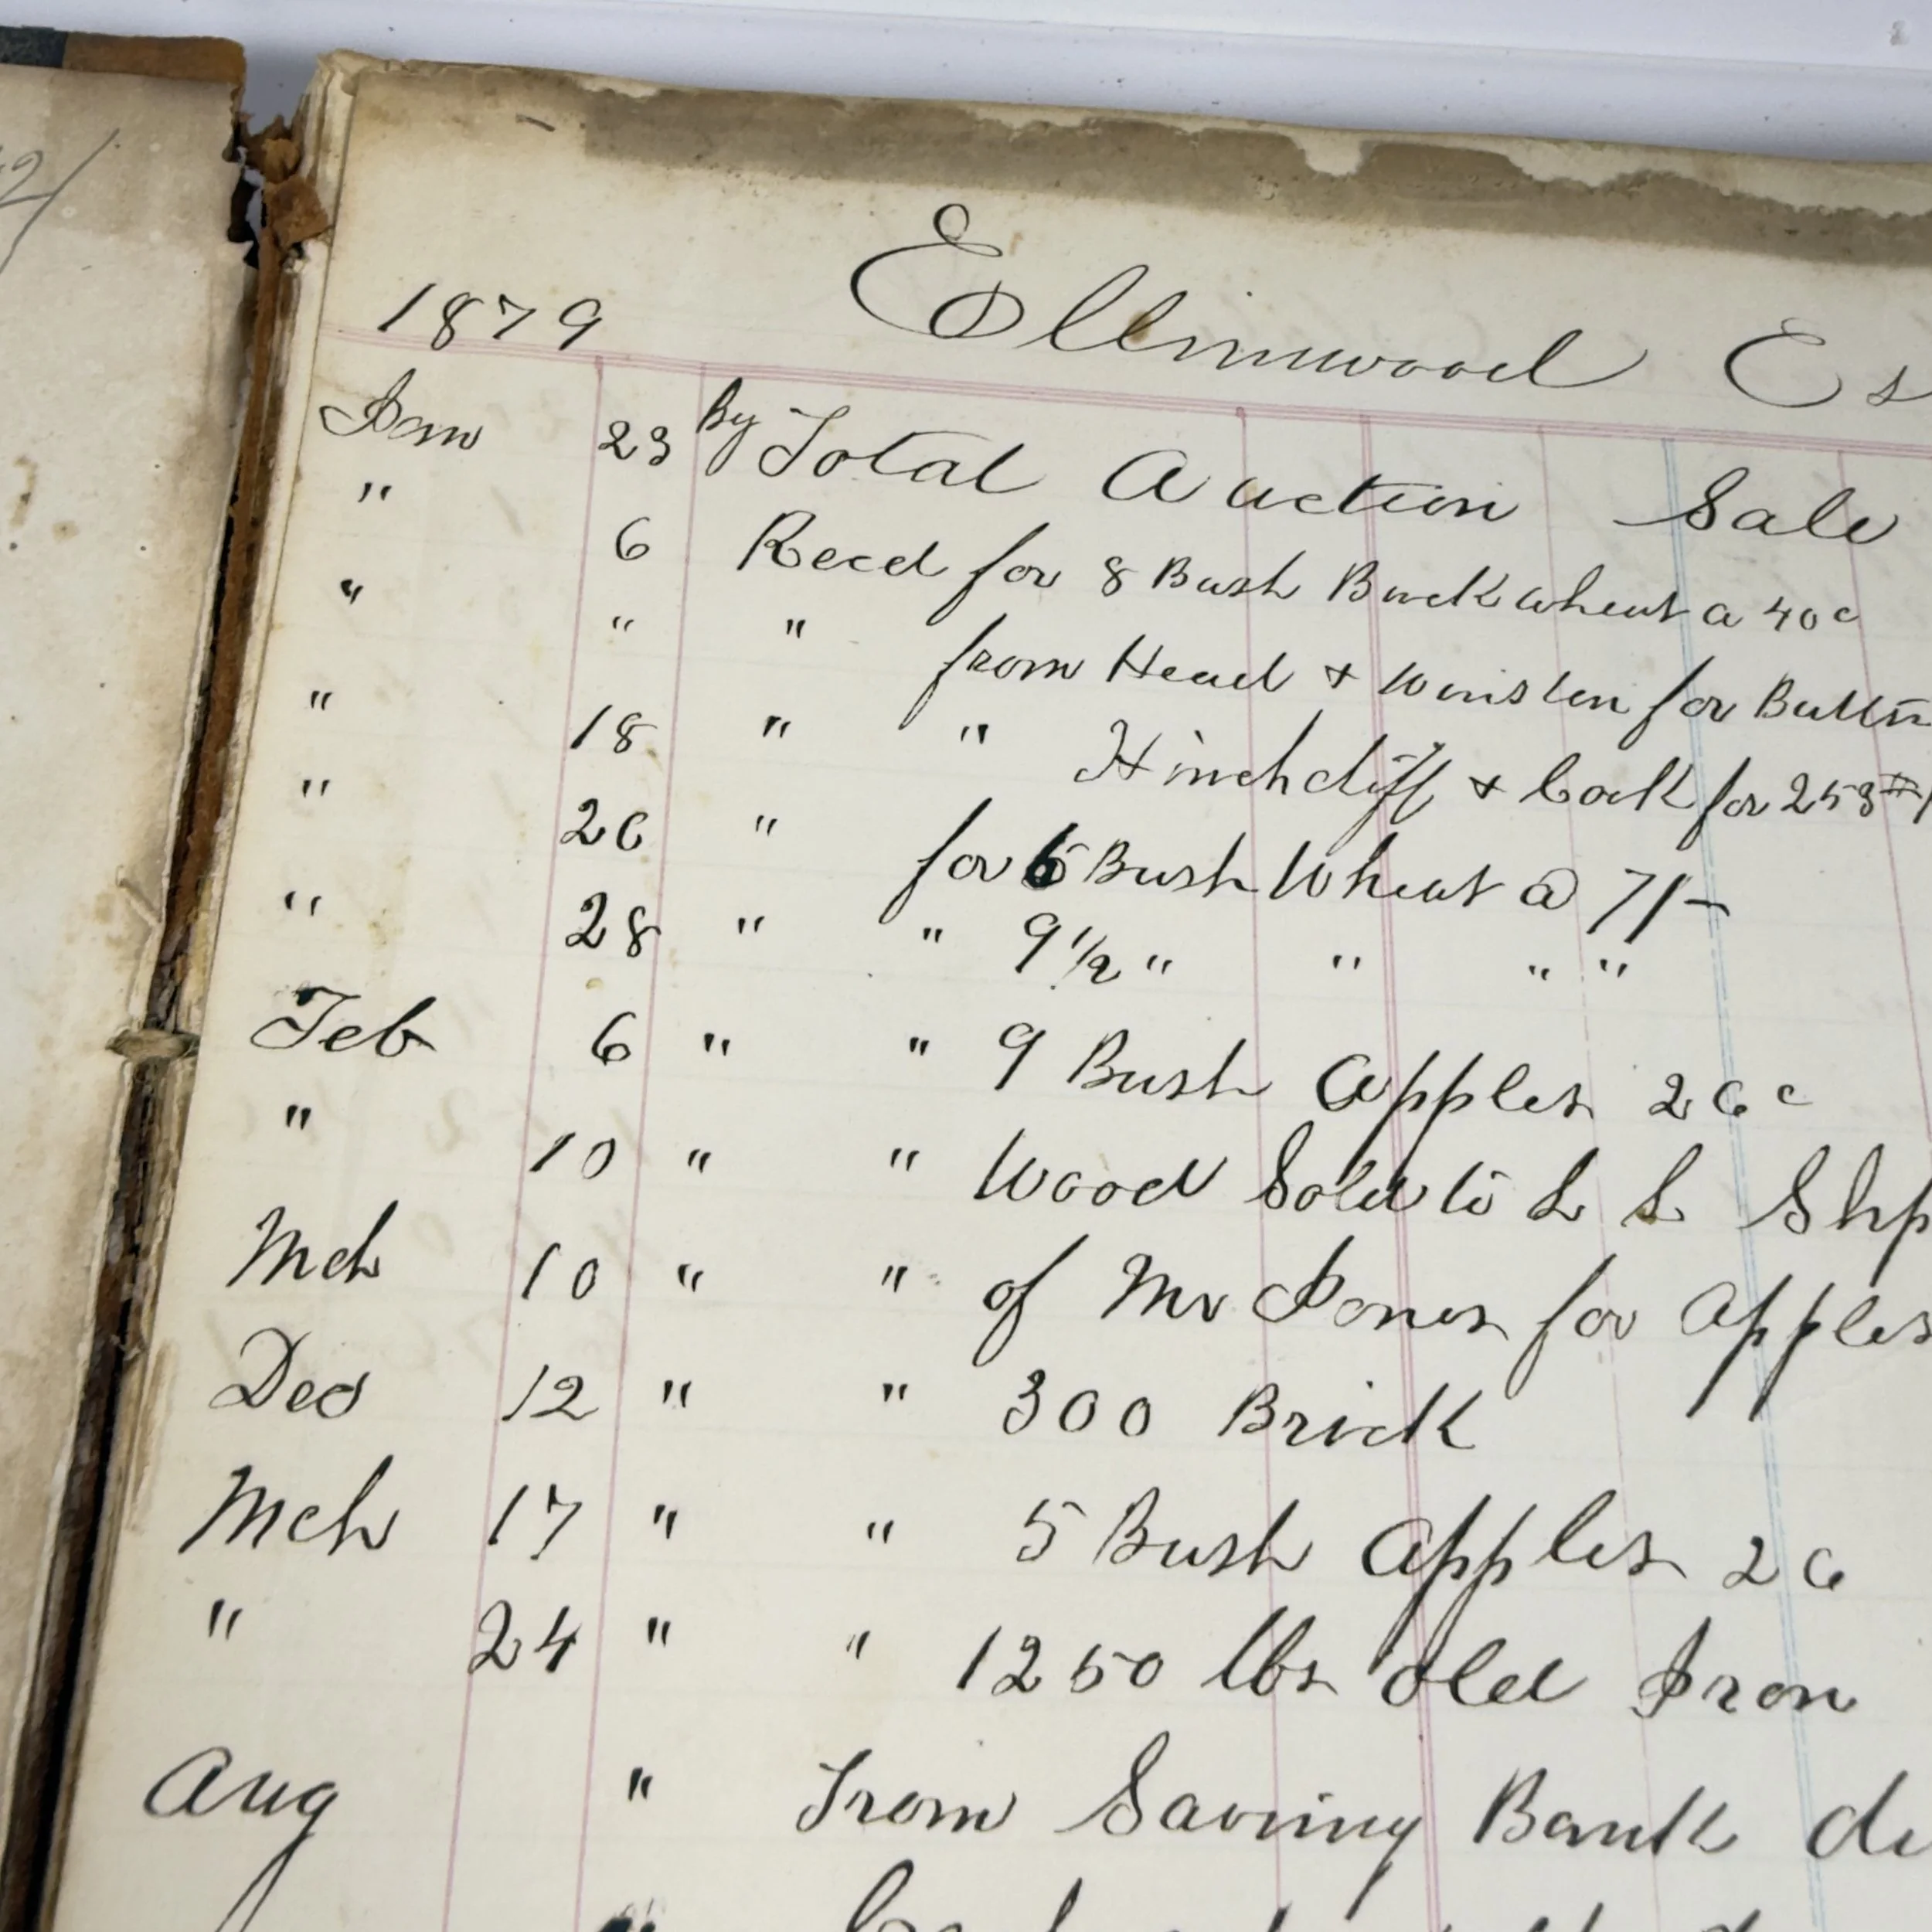 1879 Ellinwood Es
Jan 23 By Total Auction Sale
" 6 Recd for 8 Bush Buckwheat a 40c
" " " from Head + Winston for Butter
" 18 " " Hinchcliff + Cook for 258#
" 26 " for 6 Bush Wheat @ 71-
" 28 " " 9 1/2 " " " "
Feb 6 " " 9 Bush Apples 26c
" 10 " " Wood Sold to L L Shep
Mch 10 " " of Mr Jones for Apples
Dec 12 " " 300 Brick
Mch 17 " " 5 Bush Apples 26
" 24 " " 1250 lbs Old Iron
Aug " From Saving Bank di